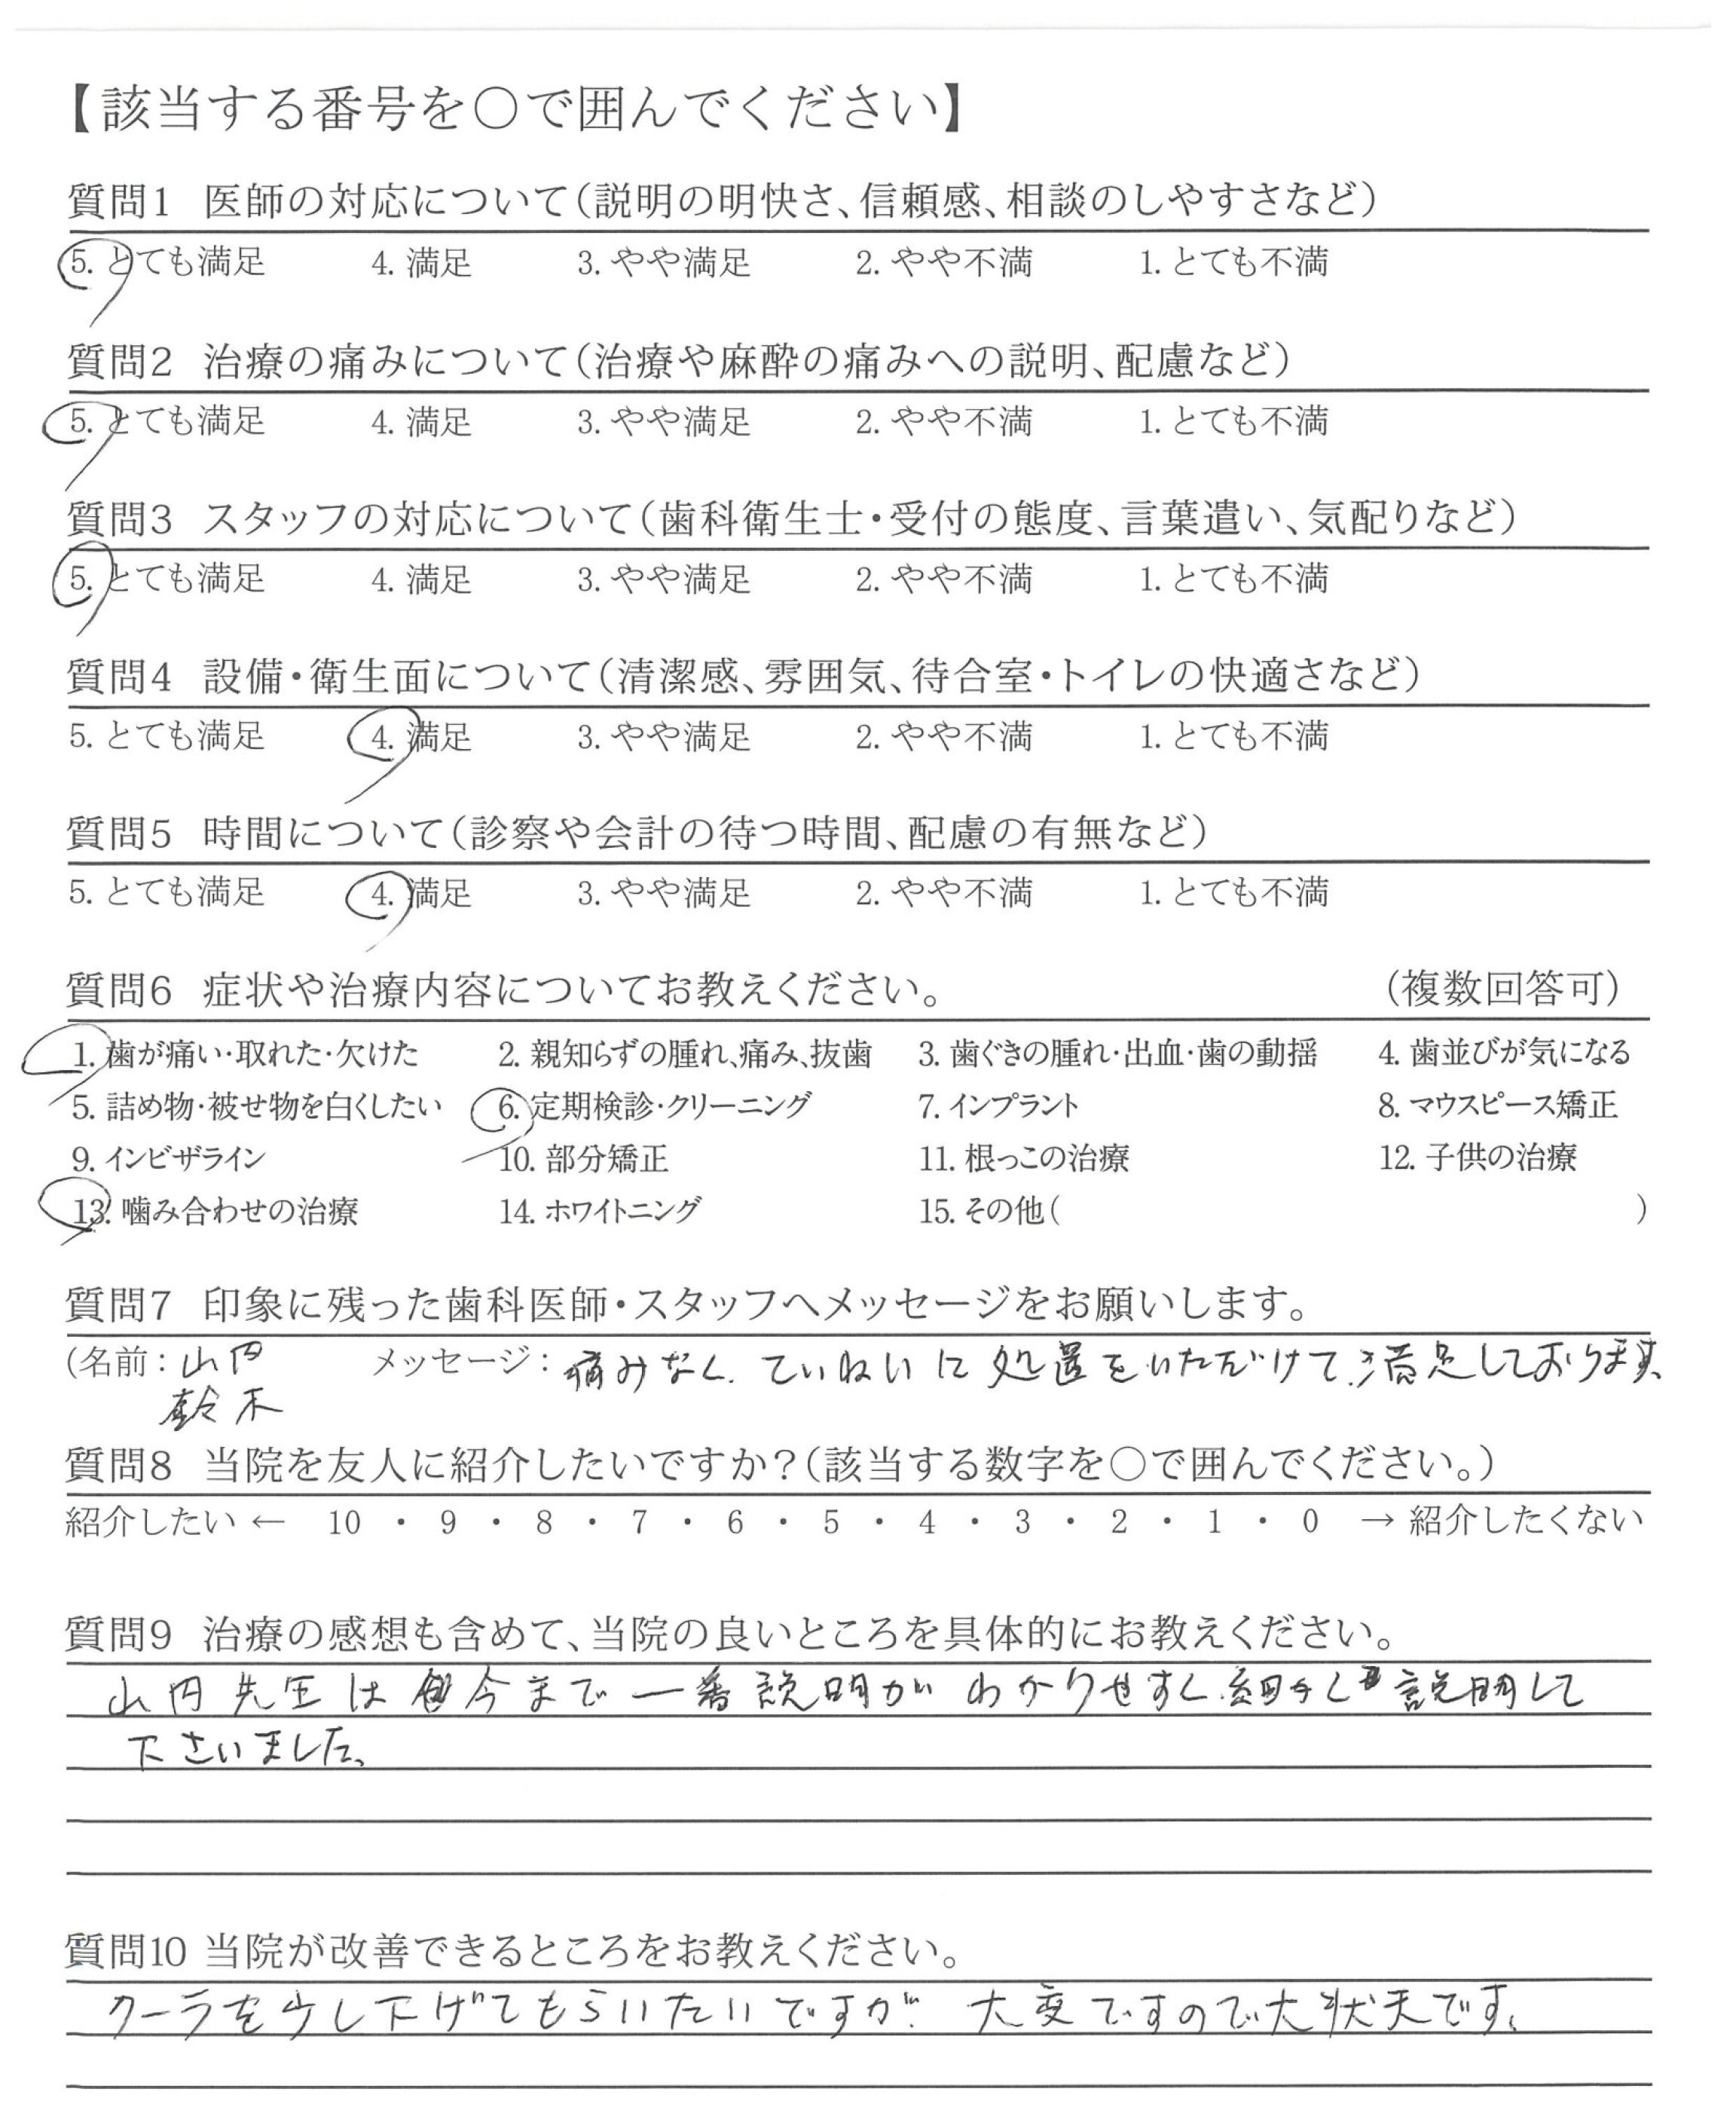 【該当する番号を○で囲んでください】
質問1 医師の対応について(説明の明快さ、信頼感、相談のしやすさなど)
5. とても満足 4. 満足 3. やや満足 2. やや不満 1. とても不満
質問2 治療の痛みについて(治療や麻酔の痛みへの説明、配慮など)
5. とても満足 4. 満足 3. やや満足 2. やや不満 1. とても不満
質問3 スタッフの対応について(歯科衛生士・受付の態度、言葉遣い、気配りなど)
5. とても満足 4. 満足 3. やや満足 2. やや不満 1. とても不満
質問4 設備・衛生面について(清潔感、雰囲気、待合室・トイレの快適さなど)
5. とても満足 4. 満足 3. やや満足 2. やや不満 1. とても不満
質問5 時間について(診察や会計の待つ時間、配慮の有無など)
5. とても満足 4. 満足 3. やや満足 2. やや不満 1. とても不満
質問6 症状や治療内容についてお教えください。 (複数回答可)
1. 歯が痛い・取れた・欠けた 2. 親知らずの腫れ、痛み、抜歯 3. 歯ぐきの腫れ・出血・歯の動揺 4. 歯並びが気になる
5. 詰め物・被せ物を白くしたい 6. 定期検診・クリーニング 7. インプラント 8. マウスピース矯正
9. インビザライン 10. 部分矯正 11. 根っこの治療 12. 子供の治療
13. 噛み合わせの治療 14. ホワイトニング 15. その他( )
質問7 印象に残った歯科医師・スタッフへメッセージをお願いします。
(名前: 山内 メッセージ: 痛みなく、ていねいに処置をいただけて満足しております、
鈴木
質問8 当院を友人に紹介したいですか?(該当する数字を○で囲んでください。)
紹介したい ← 10 ・ 9 ・ 8 ・ 7 ・ 6 ・ 5 ・ 4 ・ 3 ・ 2 ・ 1 ・ 0 → 紹介したくない
質問9 治療の感想も含めて、当院の良いところを具体的にお教えください。
山内先生は今まで一番説明がわかりやすく、細かく説明して
下さいました。
質問10 当院が改善できるところをお教えください。
クーラを少し下げてもらいたいですが 大変ですので大状夫です、